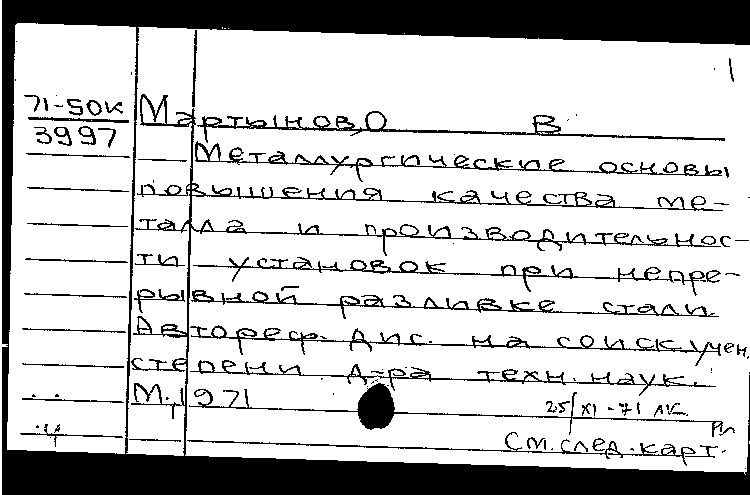 1
71-50К
3997
Мартынов, О В
Металлургические основы
повышения качества ме-
талла и производительнос-
ти установок при непре-
рывной разливке стали.
Автореф. дис. на соиск. учен.
степени д-ра техн. наук.
М., 1971
25/XI-71
См. след. карт.